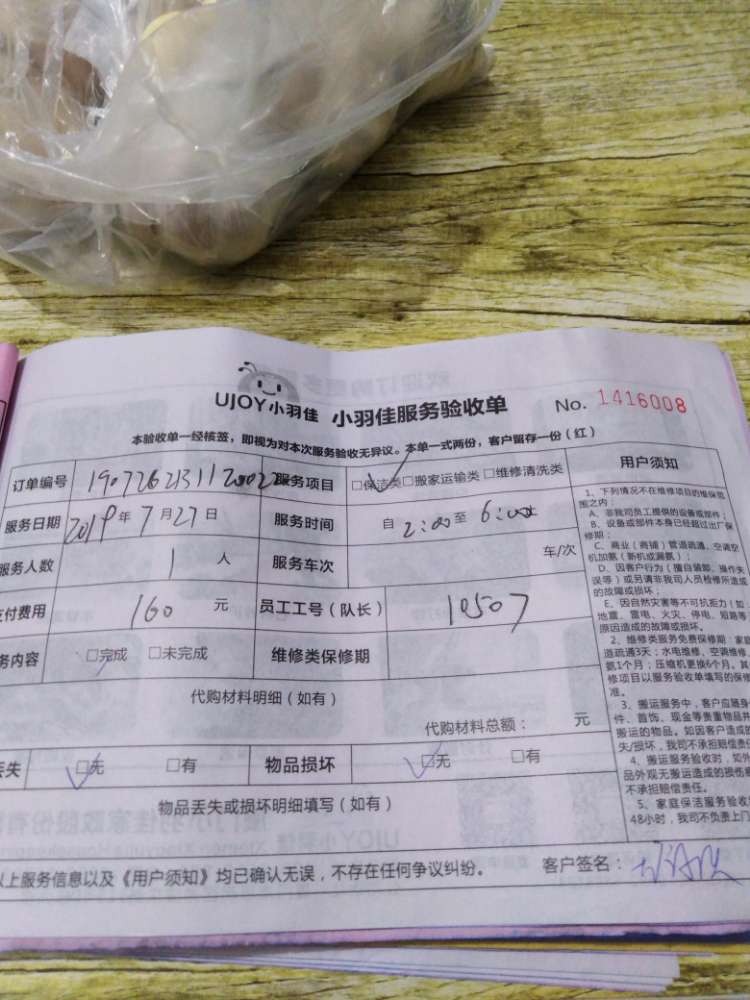 UJOY小羽佳 小羽佳服务验收单 No. 1416008
本验收单一经核签，即视为对本次服务验收无异议。本单一式两份，客户留存一份（红）
订单编号 服务项目 □保洁类□搬家运输类□维修清洗类 用户须知
服务日期 2019年7月27日 服务时间 自 2:00至 6:00
服务人数 1 人 服务车次 车/次
支付费用 160 元 员工工号（队长） 10507
务内容 □完成 □未完成 维修类保修期
代购材料明细（如有）
代购材料总额： 元
丢失 □无 □有 物品损坏 □无 □有
物品丢失或损坏明细填写（如有）
以上服务信息以及《用户须知》均已确认无误，不存在任何争议纠纷。 客户签名：
1、下列情况不在维修项目的维保范
围之内：
A、非我司员工提供的设备或部件；
B、设备或部件本身已经超过出厂保
修期；
C、商业（商铺）管道疏通、空调空
机加氨（新机或漏氨）；
D、因客户行为（擅自装卸、操作失
误等）或另请非我司人员检修所造成
的故障或损坏；
E、因自然灾害等不可抗拒力（如
地震、雷电、火灾、停电、短路等
原因造成的故障或损坏。
2、维修类服务免费保修期：家庭
道疏通3天；水电维修、空调维修、
氨1个月；压缩机更换6个月。其
修项目以服务验收单填写的保修
准。
3、搬运服务中，客户应随身
件、首饰、现金等贵重物品并
搬运的物品。如因客户造成的
失/损坏，我司不承担赔偿责任
4、搬运服务验收时，如外
品外观无搬运造成的损伤
不承担赔偿责任。
5、家庭保洁服务验收
48小时，我司不负责上门